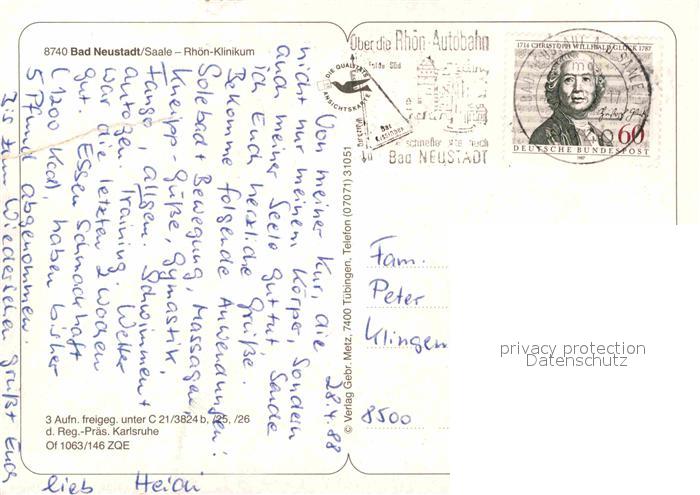 8740 Bad Neustadt/Saale – Rhön-Klinikum
28.4.88
Von meiner Kur, die
nicht nur meinem Körper, sondern
auch meiner Seele gut tut, sende
ich Euch herzliche Grüße.
Bekomme folgende Anwendungen:
Solebad + Bewegung, Massagen,
Kneipp-Güße, Gymnastik,
Fango, allgem. Schwimmen +
autogen. Training. Wetter
war die letzten 2 Wochen
gut. Essen schmackhaft
(1200 Kcal, haben bisher
5 Pfund abgenommen.
Bis zum Wiedersehen grüßt Euch
lieb Heidi
3 Aufn. freigeg. unter C 21/3824 b, /25, /26
d. Reg.-Präs. Karlsruhe
Of 1063/146 ZQE
© Verlag Gebr. Metz, 7400 Tübingen, Telefon (07071) 31051
DIE QUALITÄTS
ANSICHTSKARTE
Über die Rhön-Autobahn
Fulda-Süd
Bad
Kissingen
Bad NEUSTADT
1714 CHRISTOPH WILLIBALD GLUCK 1787
60
DEUTSCHE BUNDESPOST
1987
Fam.
Peter
Klingen
8500
privacy protection
Datenschutz